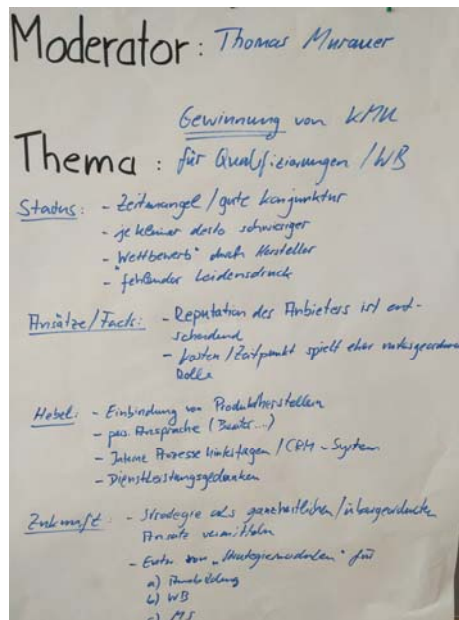 Moderator: Thomas Murauer
Gewinnung von KMU
Thema: für Qualifizierungen / WB
Status: - Zeitmangel / gute Konjunktur
- je kleiner desto schwieriger
- "Wettbewerb" durch Hersteller
- "fehlender Leidensdruck
Ansätze/Facts: - Reputation des Anbieters ist ent-
scheidend
- Kosten / Zeitpunkt spielt eher untergeordnete
Rolle
Hebel: - Einbindung von Produktherstellern
- pers. Ansprache (
- Interne Prozesse hinterfragen / CRM-System
- Dienstleistungsgedanken
Zukunft: - Strategie als ganzheitlichen / übergeordneten
Ansatz vermitteln
- von "Strategiemodulen" für
a) Ausbildung
b) WB
c) MS